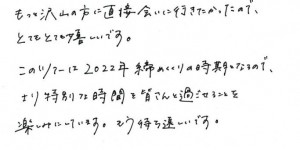 もっと沢山の方に直接会いに行きたかったので、
とてもとても嬉しいです。
このツアーは2022年締めくくりの時期となるので、
より特別な時間を皆さんと過ごせることを
楽しみにしています。もう待ち遠しいです。